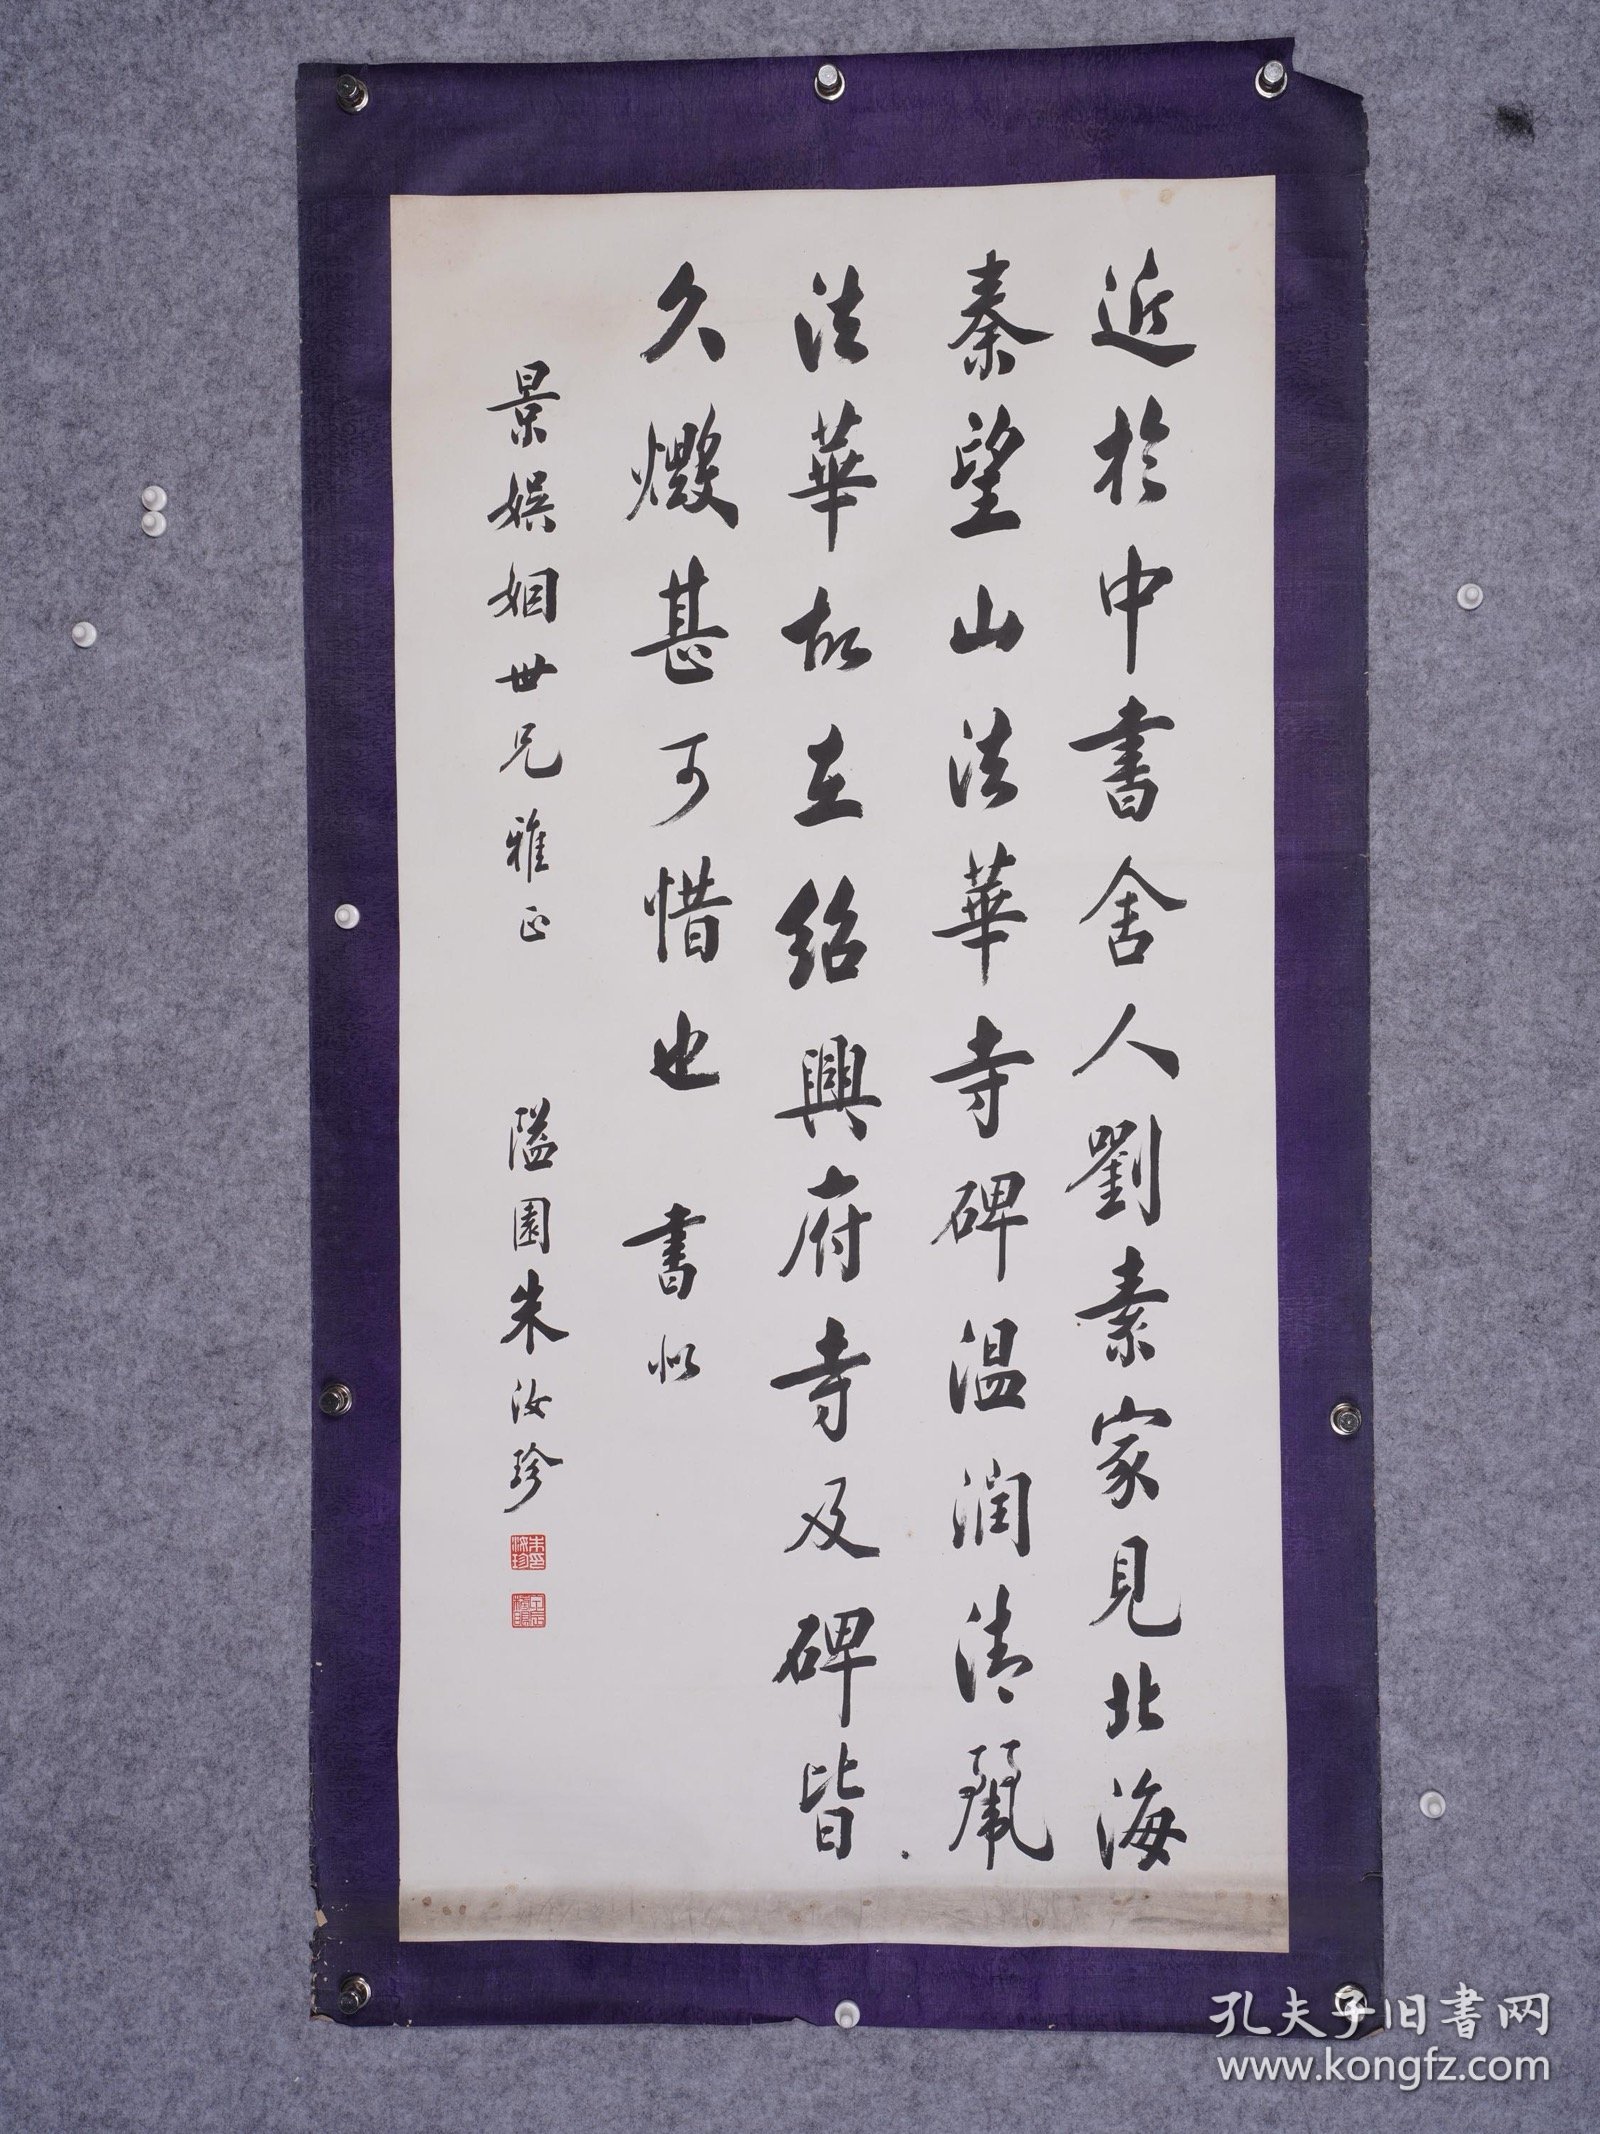 近於中書舍人劉素家見北海
秦望山法華寺碑温潤清麗
法華故在紹興府寺及碑皆
久燬甚可惜也 書似
景娱姻世兄雅正 隘園朱汝珍
朱汝珍印
孔夫子旧书网
www.kongfz.com